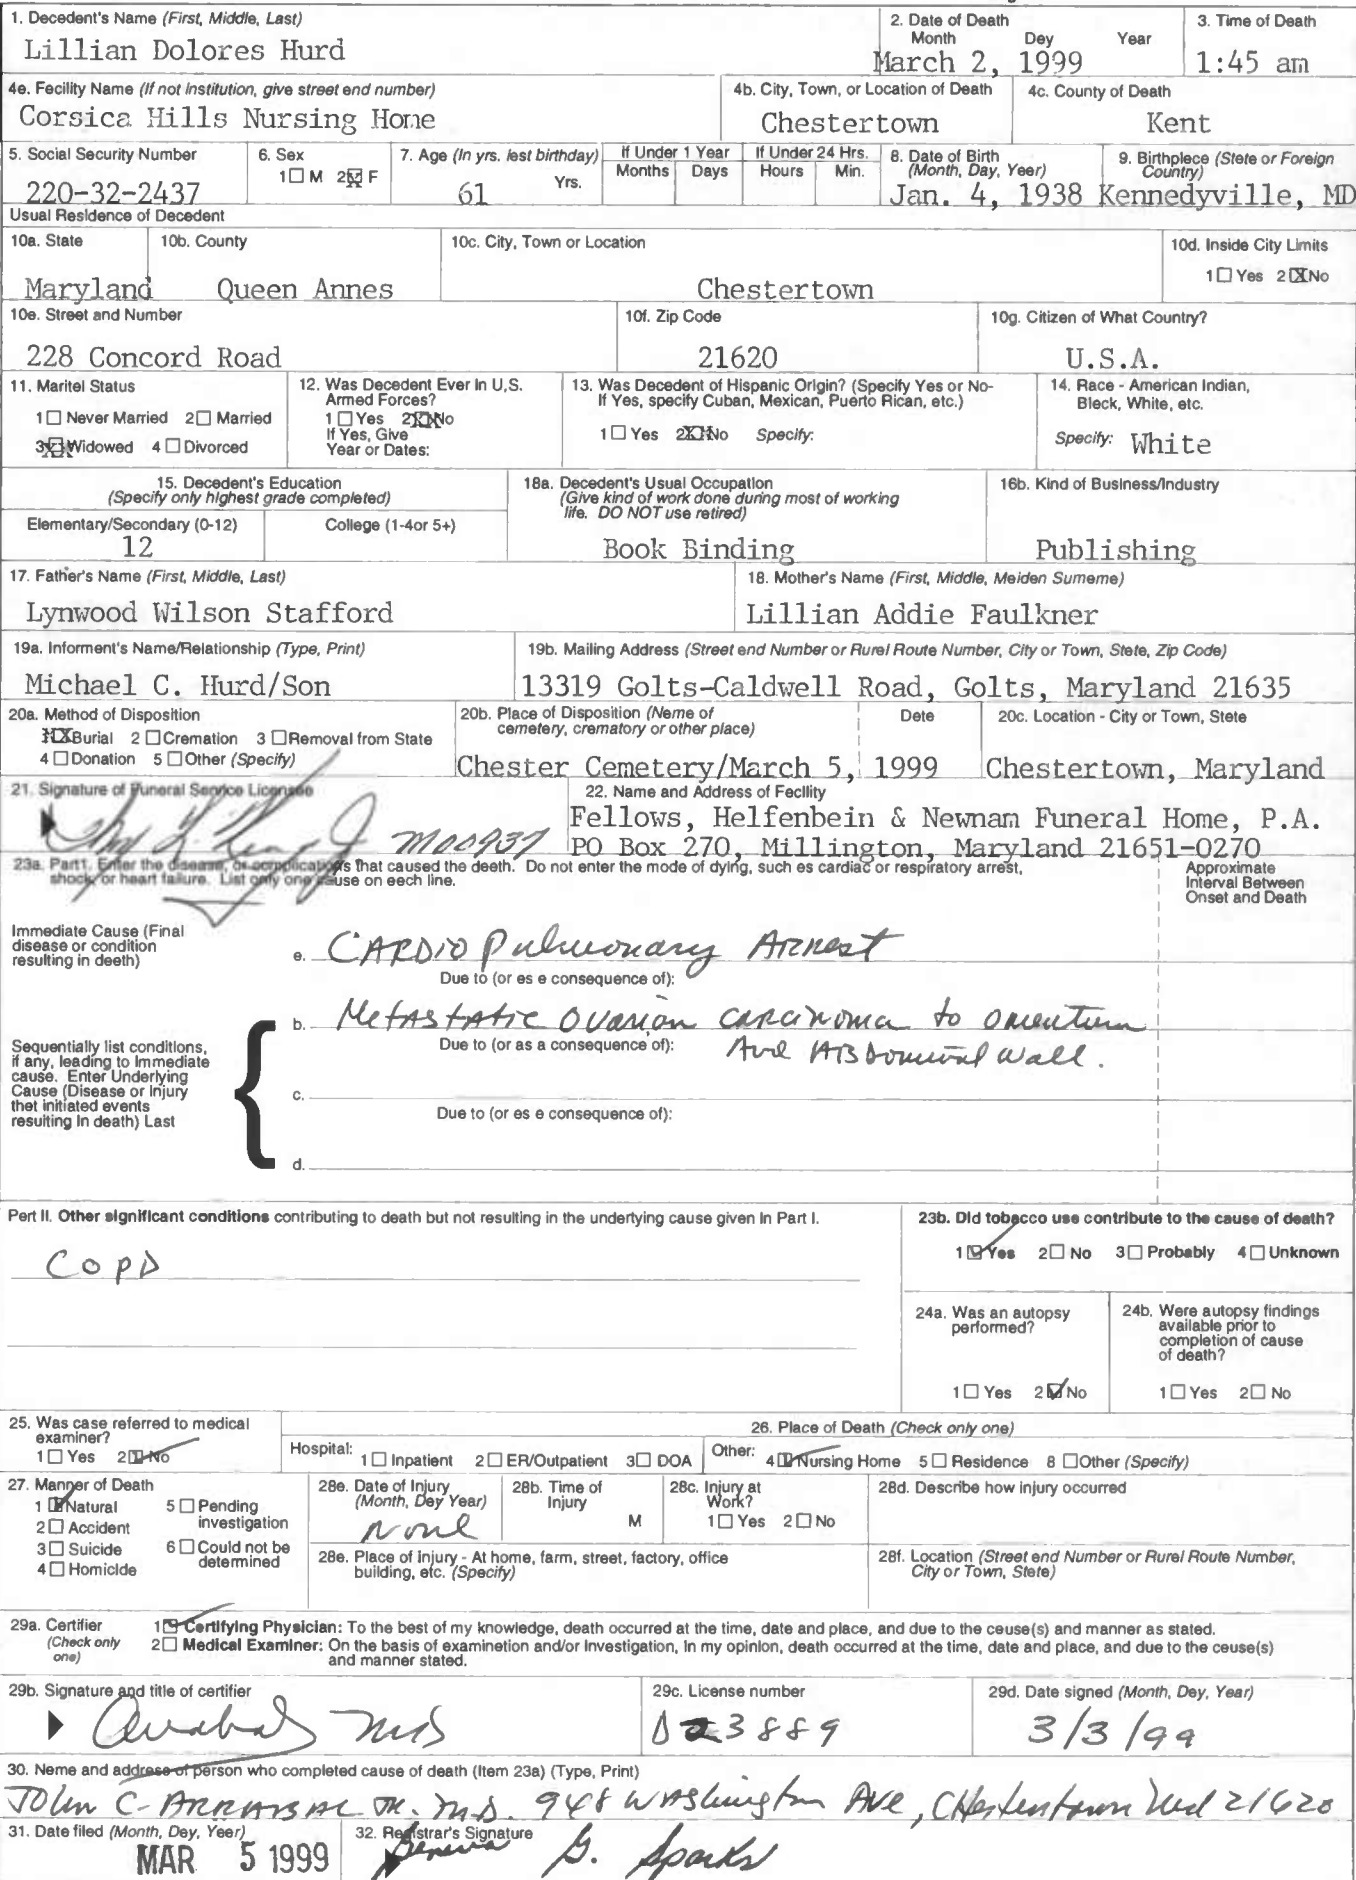 1. Decedent's Name (First, Middle, Last)
Lillian Dolores Hurd
2. Date of Death
Month Dey Year
March 2, 1999
3. Time of Death
1:45 am
4e. Fecility Name (If not Institution, give street end number)
Corsica Hills Nursing Home
4b. City, Town, or Location of Death
Chestertown
4c. County of Death
Kent
5. Social Security Number
220-32-2437
6. Sex
1☐ M 2☒ F
7. Age (In yrs. lest birthday)
61 Yrs.
If Under 1 Year
Months Days
If Under 24 Hrs.
Hours Min.
8. Date of Birth
(Month, Day, Year)
Jan. 4, 1938
9. Birthplece (Stete or Foreign
Country)
Kennedyville, MD
Usual Residence of Decedent
10a. State
Maryland
10b. County
Queen Annes
10c. City, Town or Location
Chestertown
10d. Inside City Limits
1☐Yes 2☒No
10e. Street and Number
228 Concord Road
10f. Zip Code
21620
10g. Citizen of What Country?
U.S.A.
11. Maritel Status
1☐ Never Married 2☐ Married
3☒Widowed 4☐ Divorced
12. Was Decedent Ever In U,S.
Armed Forces?
1☐Yes 2☒No
If Yes, Give
Year or Dates:
13. Was Decedent of Hispanic Origin? (Specify Yes or No-
If Yes, specify Cuban, Mexican, Puerto Rican, etc.)
1☐Yes 2☒No Specify:
14. Race - American Indian,
Bleck, White, etc.
Specify: White
15. Decedent's Education
(Specify only highest grade completed)
Elementary/Secondary (0-12)
12
College (1-4or 5+)
18a. Decedent's Usual Occupation
(Give kind of work done during most of working
life. DO NOT use retired)
Book Binding
16b. Kind of Business/Industry
Publishing
17. Father's Name (First, Middle, Last)
Lynwood Wilson Stafford
18. Mother's Name (First, Middle, Meiden Sumeme)
Lillian Addie Faulkner
19a. Informent's Name/Relationship (Type, Print)
Michael C. Hurd/Son
19b. Mailing Address (Street end Number or Rurel Route Number, City or Town, Stete, Zip Code)
13319 Golts-Caldwell Road, Golts, Maryland 21635
20a. Method of Disposition
1☒Burial 2☐Cremation 3☐Removal from State
4☐Donation 5☐Other (Specify)
20b. Place of Disposition (Neme of
cemetery, crematory or other place)
Dete
Chester Cemetery/March 5, 1999
20c. Location - City or Town, Stete
Chestertown, Maryland
21. Signature of Funeral Service Licensee
M00937
22. Name and Address of Fecility
Fellows, Helfenbein & Newnam Funeral Home, P.A.
PO Box 270, Millington, Maryland 21651-0270
23a. Part1. Enter the disease, or complications that caused the deeth. Do not enter the mode of dying, such es cardiac or respiratory arrest,
shock, or heart failure. List only one cause on eech line.
Approximate
Interval Between
Onset and Death
Immediate Cause (Final
disease or condition
resulting in deeth)
e. CARDIO Pulmonary Arrest
Due to (or es e consequence of):
b. Metastatic Ovarian carcinoma to omentum
Due to (or as a consequence of): And Abdominal Wall.
Sequentially list conditions,
if any, leading to Immediate
cause. Enter Underlying
Cause (Disease or Injury
thet initiated events
resulting in death) Last
c.
Due to (or es e consequence of):
d.
Part II. Other significant conditions contributing to death but not resulting in the undertying cause given In Part I.
COPD
23b. Did tobacco use contribute to the cause of death?
1☑Yes 2☐ No 3☐Probably 4☐Unknown
24a. Was an autopsy
performed?
1☐Yes 2☑No
24b. Were autopsy findings
available prior to
completion of cause
of death?
1☐Yes 2☐ No
25. Was case referred to medical
examiner?
1☐Yes 2☑No
26. Place of Death (Check only one)
Hospital: 1☐Inpatient 2☐ER/Outpatient 3☐ DOA
Other: 4☑Nursing Home 5☐Residence 8☐Other (Specify)
27. Manner of Death
1☑Natural
2☐Accident
3☐Suicide
4☐Homicide
5☐Pending
investigation
6☐Could not be
determined
28e. Date of Injury
(Month, Dey Year)
None
28b. Time of
Injury
M
28c. Injury at
Work?
1☐Yes 2☐No
28d. Describe how injury occurred
28e. Place of injury - At home, farm, street, factory, office
building, etc. (Specify)
28f. Location (Street end Number or Rurel Route Number,
City or Town, Stete)
29a. Certifier
(Check only
one)
1☑Certifying Physician: To the best of my knowledge, death occurred at the time, date and place, and due to the ceuse(s) and manner as stated.
2☐ Medical Examiner: On the basis of examinetion and/or Investigation, In my opinion, death occurred at the time, date and place, and due to the ceuse(s)
and manner stated.
29b. Signature and title of certifier
MD
29c. License number
D23889
29d. Date signed (Month, Dey, Year)
3/3/99
30. Neme and address of person who completed cause of death (Item 23a) (Type, Print)
John C. ARRABAL JR. M.D. 948 Washington Ave, Chestertown Md 21620
31. Date filed (Month, Dey, Yeer)
MAR 5 1999
32. Registrar's Signature
Geneva G. Sparks